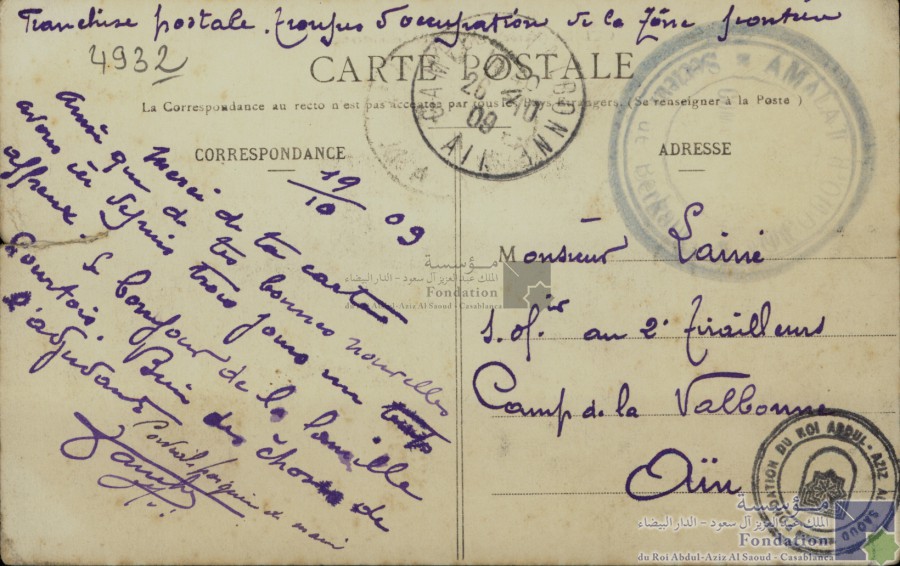 Franchise postale. Troupes d'occupation de la Zône frontière
4932
CARTE POSTALE
La Correspondance au recto n'est pas acceptée par tous les Pays Étrangers. (Se renseigner à la Poste)
CORRESPONDANCE
19/10 09
Merci de ta carte
Ainsi que de tes bonnes nouvelles
avons ici depuis trois jours un temps
affreux. Le bonjour de la famille
Courtois. Bien des choses de
l'adjudant
ADRESSE
Monsieur Lainé
s. of.ir au 2e Tirailleurs
Camp de la Valbonne
Aïn
CAMP DE LA VALBONNE
26
10
09
AIN
AMALAT
مؤسسة
الملك عبد العزيز آل سعود - الدار البيضاء
Fondation
du Roi Abdul-Aziz Al Saoud - Casablanca
FONDATION DU ROI ABDUL-AZIZ AL SAOUD
مؤسسة
الملك عبد العزيز آل سعود - الدار البيضاء
Fondation
du Roi Abdul-Aziz Al Saoud - Casablanca